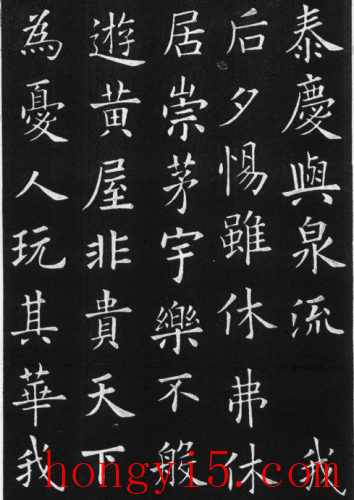 泰慶與泉流我
后夕惕雖休弗休
居崇茅宇樂不般
遊黄屋非貴天下
為憂人玩其華我
hongyi5.com